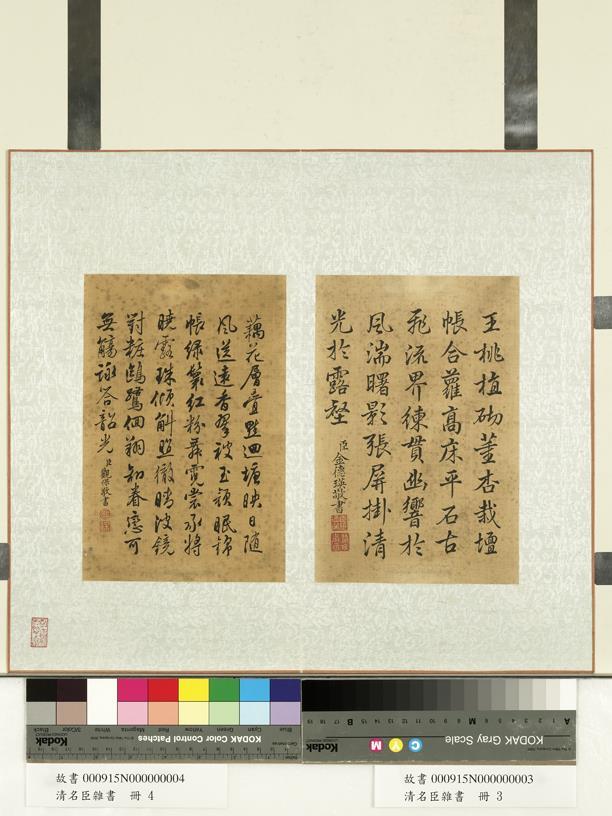 王桃植砌董杏栽壇
帳合蘿高床平石古
飛流界練貫幽響於
風湍曙影張屏掛清
光於露壑
臣金德瑛敬書
藕花層疊點迴塘映日隨
風送遠香翠被玉頹眠錦
帳綠鬟紅粉舞霓裳承將
曉露珠傾斛照徹晴波鏡
對粧鷗鷺佪翔知眷戀可
無觴詠答韶光
臣觀保敬書
Blue
Cyan
Green
Yellow
Red
Magenta
White
3/Color
Black
Kodak
KODAK Color Control Patches
Kodak
KODAK Gray Scale
C Y M
A 1 2 3 4 5 6 M 8 9 10 11 12 13 14 15 B 17 18 19
故書 000915N000000004
清名臣雜書 冊 4
故書 000915N000000003
清名臣雜書 冊 3